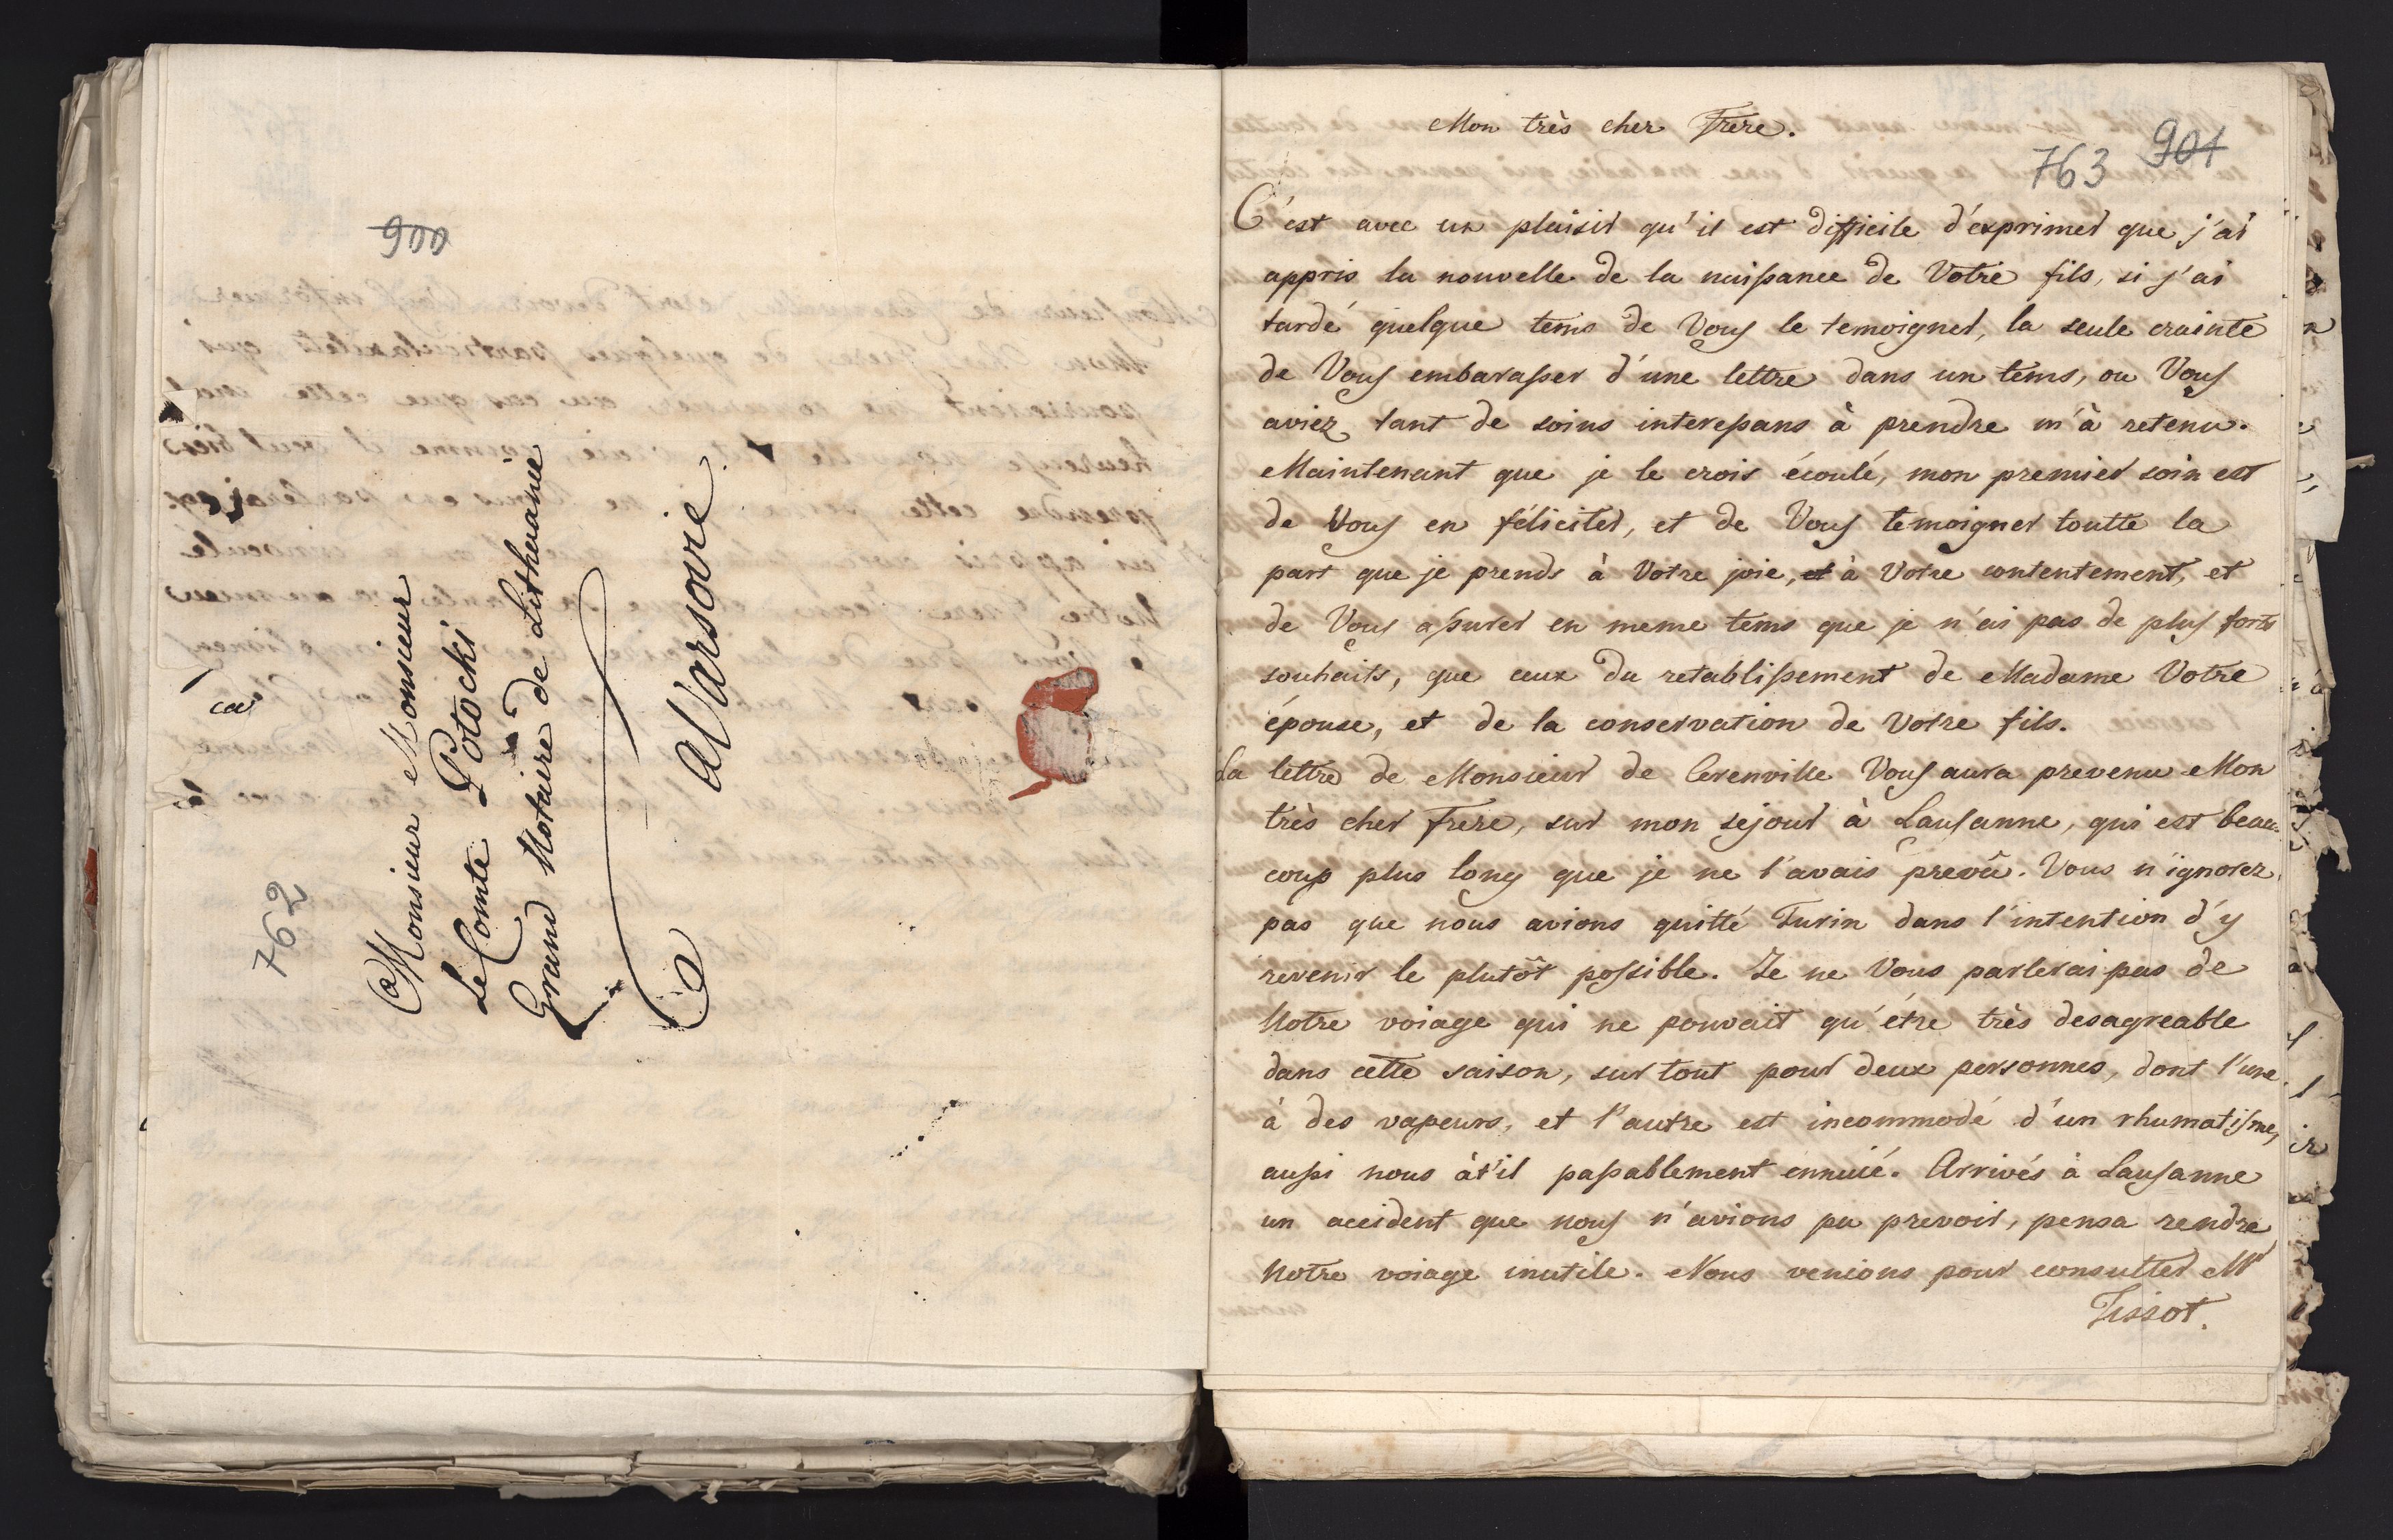 900
762
A Monsieur Monsieur
Le Comte Potocki
Grand Notaire de Lithuanie
a Varsovie
Mon très cher Frere.
901
763
C'est avec un plaisir qu'il est difficile d'exprimer que j'ai
appris la nouvelle de la naissance de Votre fils, si j'ai
tardé quelque tems de Vous le temoigner, la seule crainte
de Vous embarasser d'une lettre dans un tems, ou Vous
aviez tant de soins interessans à prendre m'à retenu.
Maintenant que je le crois écoulé, mon premier soin est
de Vous en féliciter, et de Vous temoigner toutte la
part que je prends à Votre joie, et à Votre contentement, et
de Vous assurer en meme tems que je n'ai pas de plus forts
souhaits, que ceux du retablissement de Madame Votre
épouse, et de la conservation de Votre fils.
La lettre de Monsieur de Cerenville Vous aura prevenu Mon
très cher Frere, sur mon sejour à Lausanne, qui est beau-
coup plus long que je ne l'avais prevû. Vous n'ignorez
pas que nous avions quitté Turin dans l'intention d'y
revenir le plutôt possible. Je ne Vous parlerai pas de
Notre voiage qui ne pouvait qu'étre très desagreable
dans cette saison, sur tout pour deux personnes, dont l'une
à des vapeurs, et l'autre est incommodé d'un rhumatisme,
aussi nous àt'il passablement ennuié. Arrivés à Lausanne
un accident que nous n'avions pu prevoir, pensa rendre
Notre voiage inutile. Nous venions pour consulter Mr
Tissot.